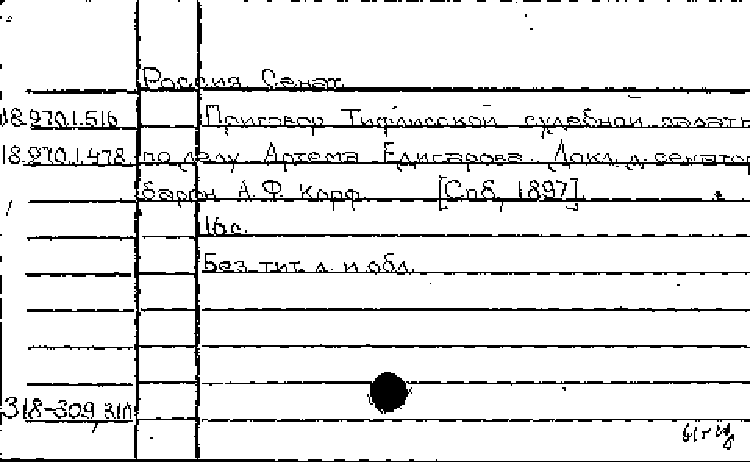 Россия. Сенат.
18.970.1.516 Приговор Тифлисской судебной палаты
18.970.1.478 по делу Артема Едигарова. Докл. д. сенатор
барон А. Ф. Корф. [Спб, 1897].
16 с.
Без тит. л. и обл.
318-309, 310